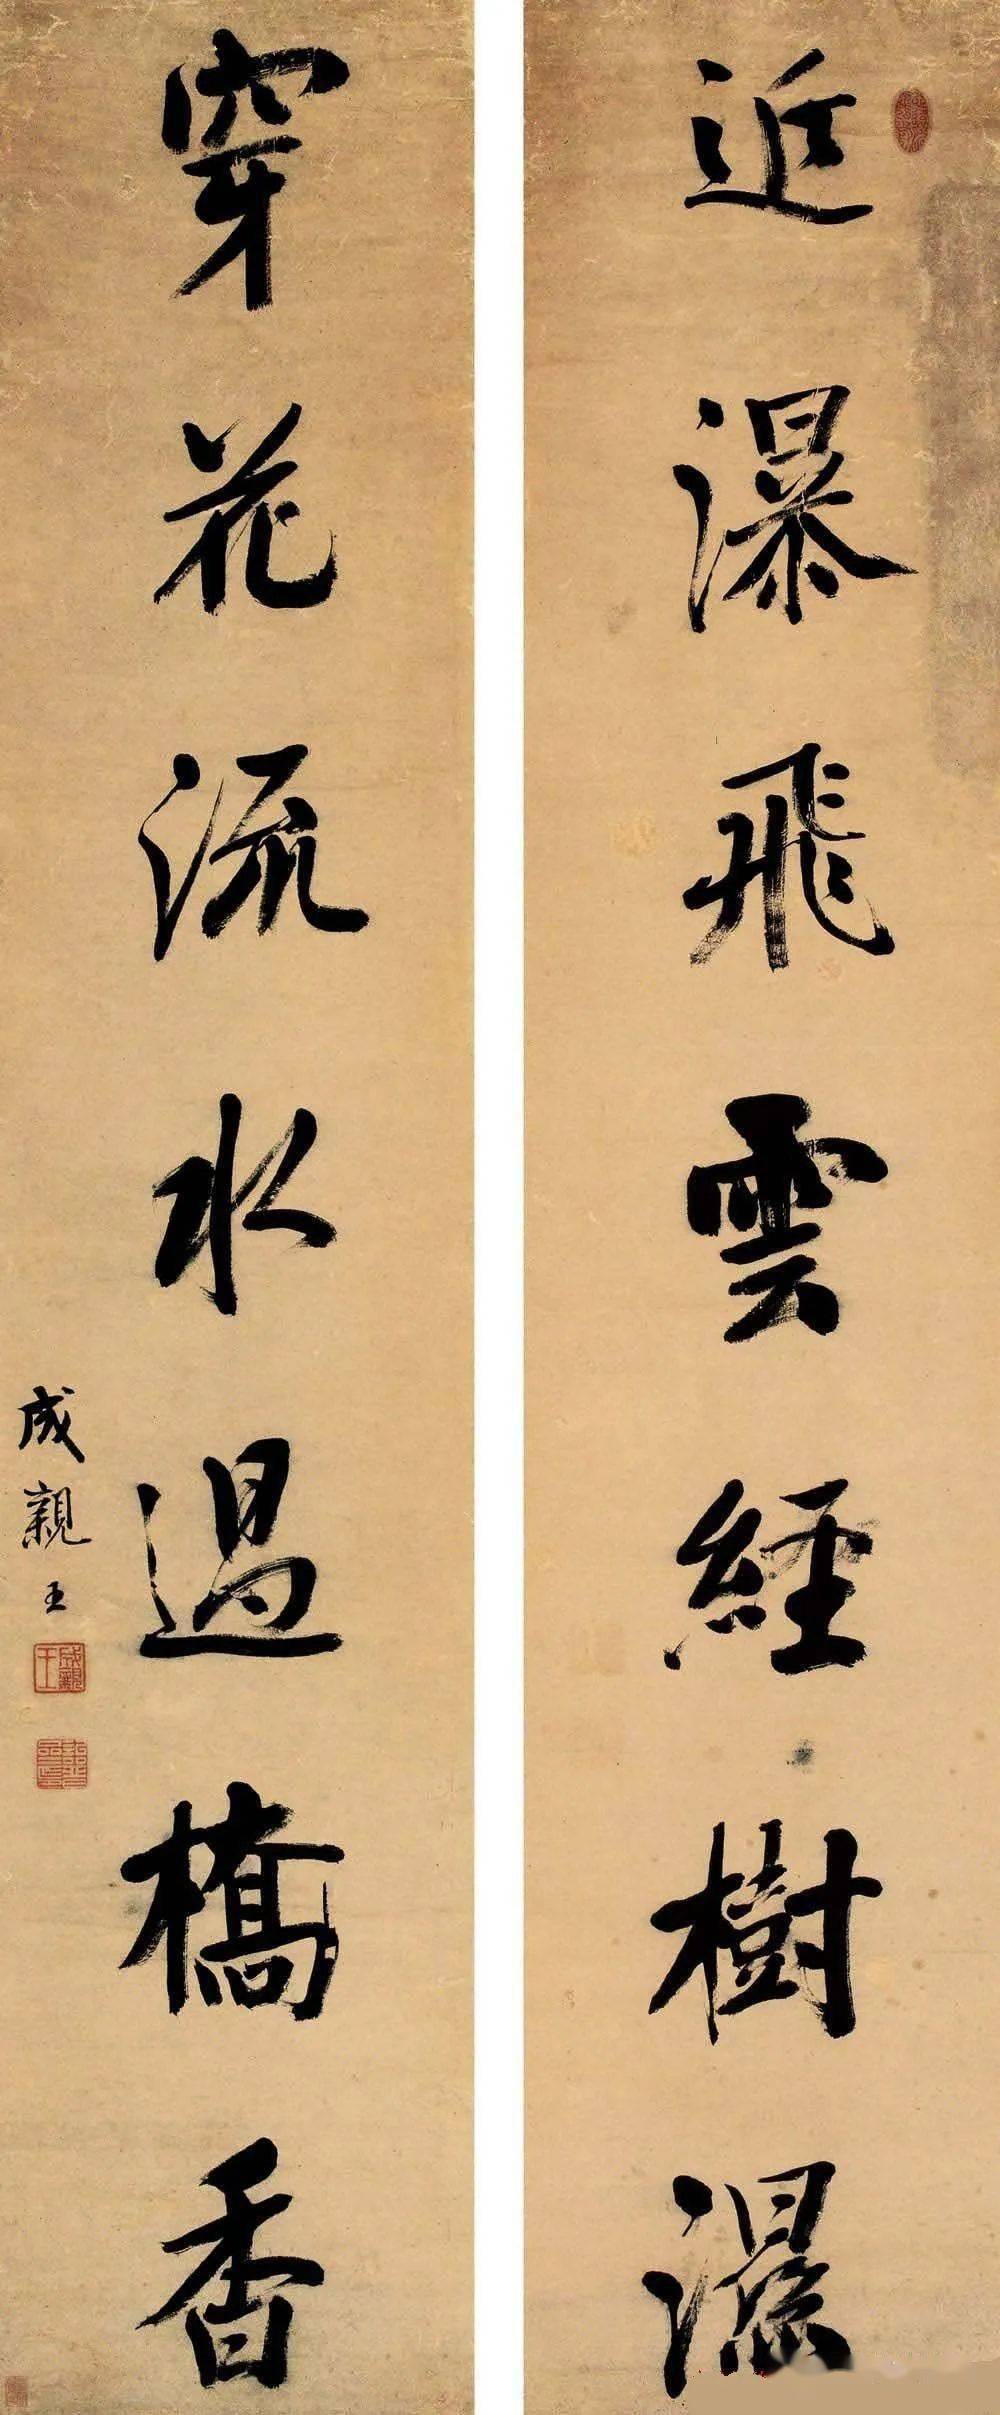 近瀑飛雲經樹濕
穿花流水過橋香
成親王
成親王